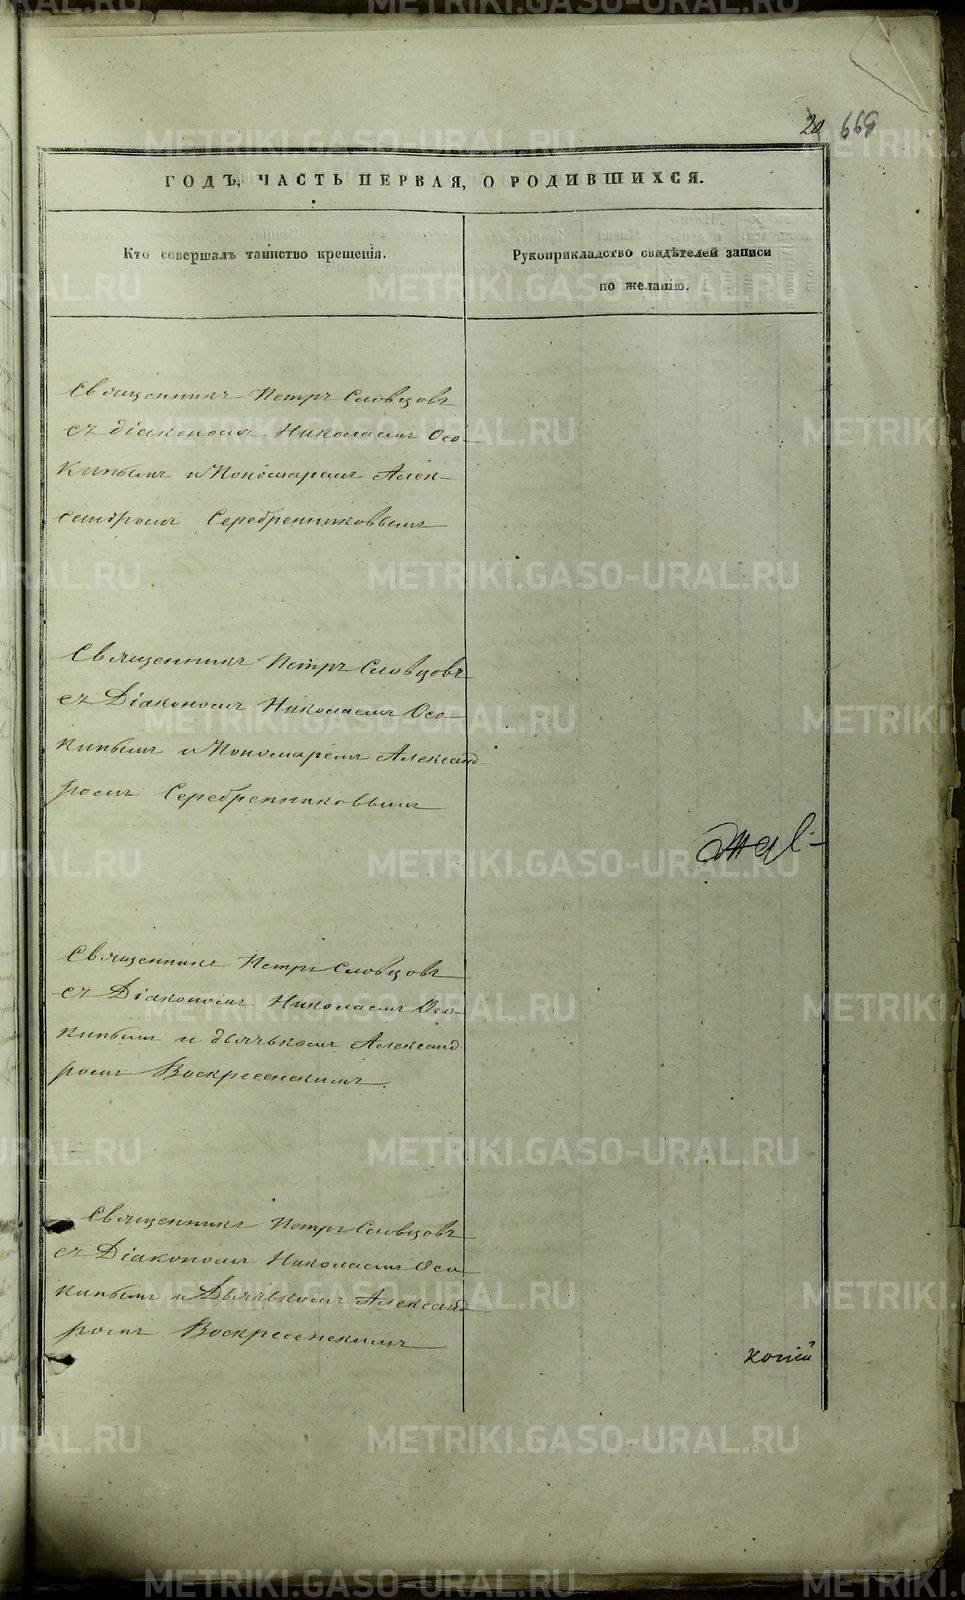 20 669
ГОДЪ, ЧАСТЬ ПЕРВАЯ, О РОДИВШИХСЯ.
Кто совершалъ таинство крещенія.
Рукоприкладство свидѣтелей записи
по желанію.
Священникъ Петръ Словцовъ
съ діакономъ Николаемъ Осо-
кинымъ и Пономаремъ Алек-
сандромъ Серебренниковымъ
Священникъ Петръ Словцовъ
съ Діакономъ Николаемъ Осо-
кинымъ и Пономаремъ Александ
ромъ Серебренниковымъ
Священникъ Петръ Словцовъ
съ Діакономъ Николаемъ Осо-
кинымъ и дьячькомъ Александ
ромъ Воскресенскимъ.
Священникъ Петръ Словцовъ
съ Діакономъ Николаемъ Осо
кинымъ и Дьячькомъ Александ
ромъ Воскресенскимъ
копій
METRIKI.GASO-URAL.RU